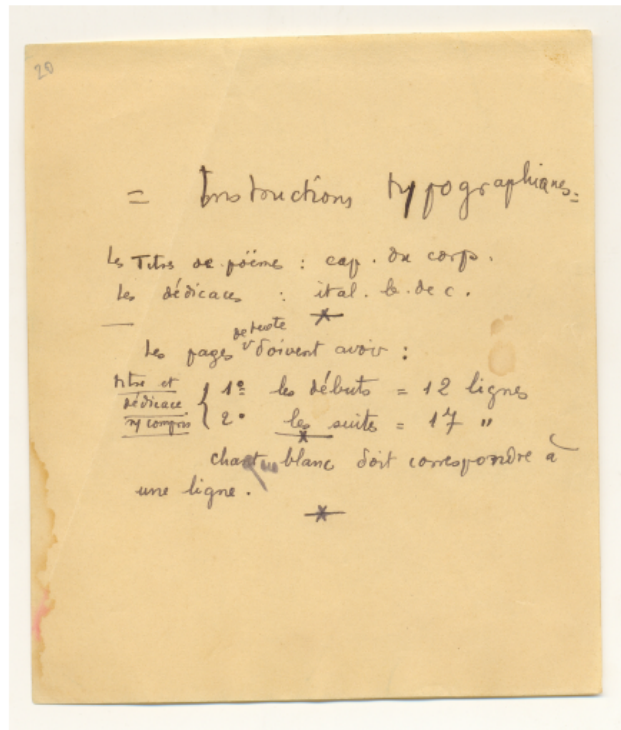 20
= Instructions typographiques =
Les Titres de poëme : cap. du corps.
Les dédicaces : ital. b. de c.
de texte
Les pages doivent avoir :
titre et dédicace ny compris { 1º les débuts = 12 lignes
2º les suites = 17 "
chaque blanc doit correspondre à
une ligne.